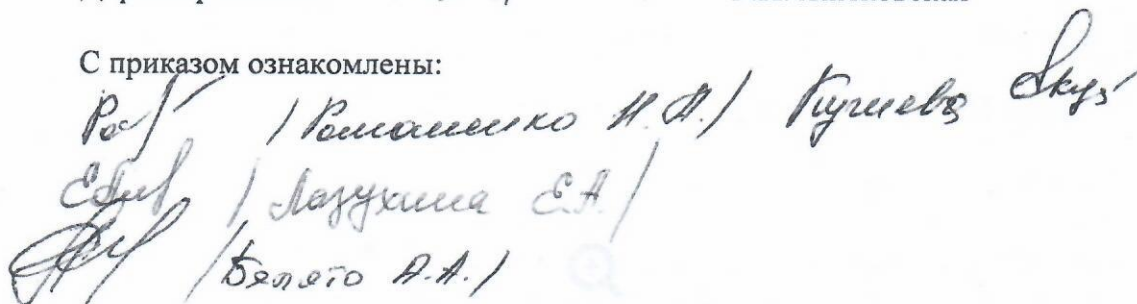 С приказом ознакомлены:
/Романенко Н.А./ Кушева
/Лазухина Е.А./
/Бялято А.А./